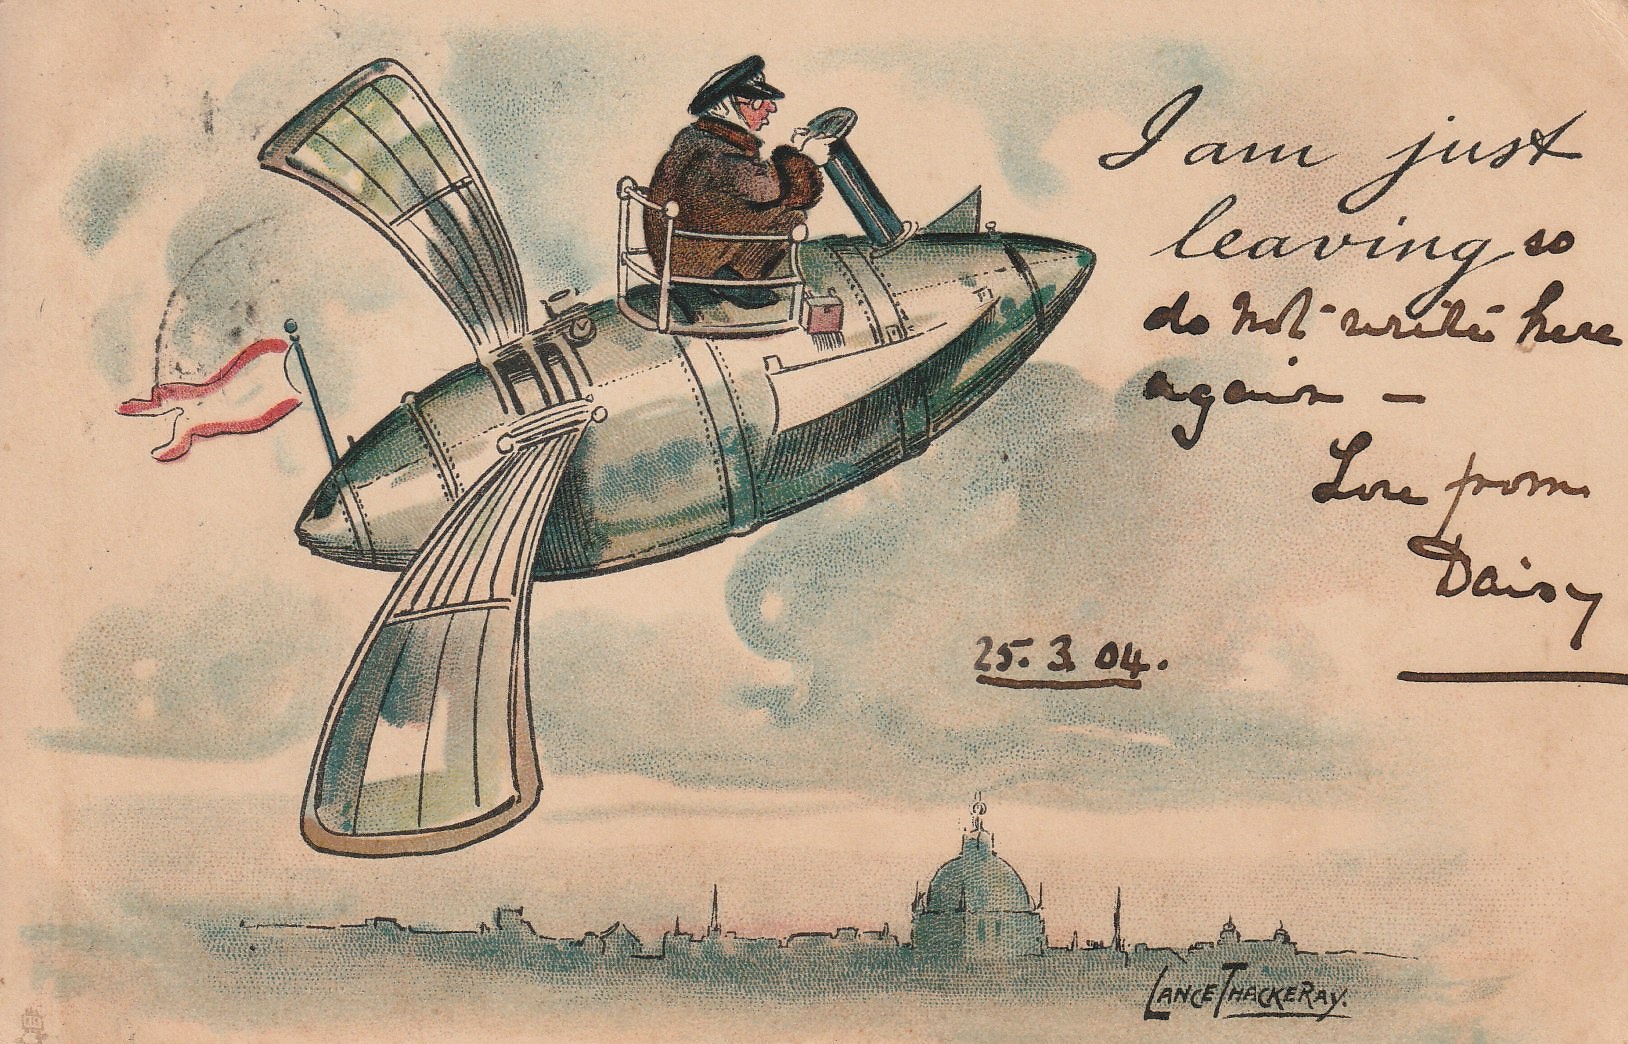 I am just
leaving so
do not write here
again —
Love from
Daisy
25.3.04.
LANCE THACKERAY.